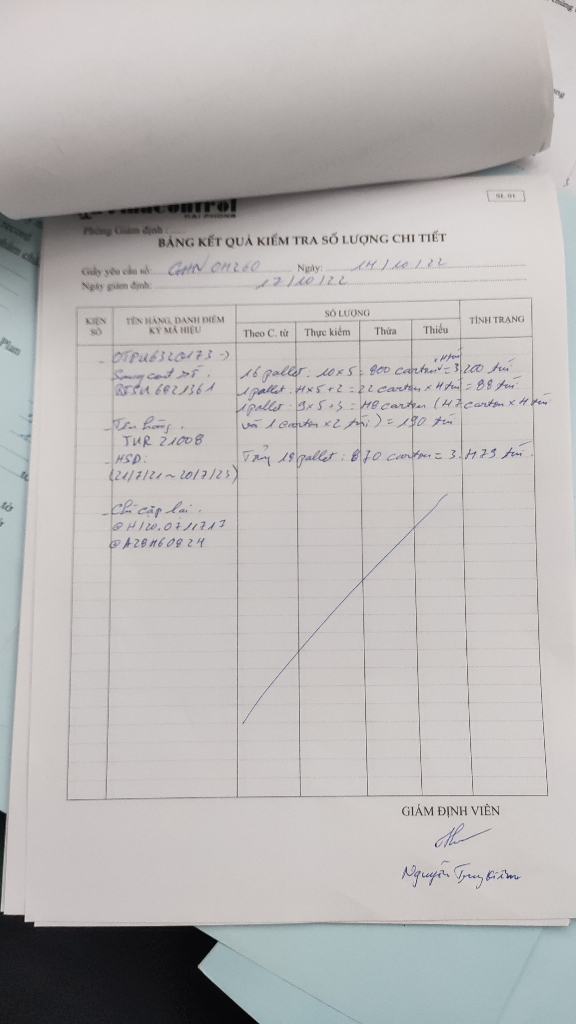 Vinacontrol
HAI PHONG
SL 01
Phòng Giám định :
BẢNG KẾT QUẢ KIỂM TRA SỐ LƯỢNG CHI TIẾT
Giấy yêu cầu số: Ngày: 14/10/22
Ngày giám định: 17/10/22
KIỆN SỐ
TÊN HÀNG, DANH ĐIỂM KÝ MÃ HIỆU
SỐ LƯỢNG
TÌNH TRẠNG
Theo C. từ Thực kiểm Thừa Thiếu
Sang cont
16 pallet : 10 x 5 = 800 carton = 3.200 túi
1 pallet : 4 x 5 + 2 = 22 carton x 4 túi = 88 túi
1 pallet : 9 x 5 + 3 = 48 carton (47 carton x 4 túi
Tên hàng. và 1 carton x 2 túi) = 190 túi
TUR 2100B
- HSD: 18 pallet : 870 carton = 3.479 túi
(21/7/21 ~ 20/7/23)
- Chì cặp lại.
GIÁM ĐỊNH VIÊN
Nguyễn Trung Kiên